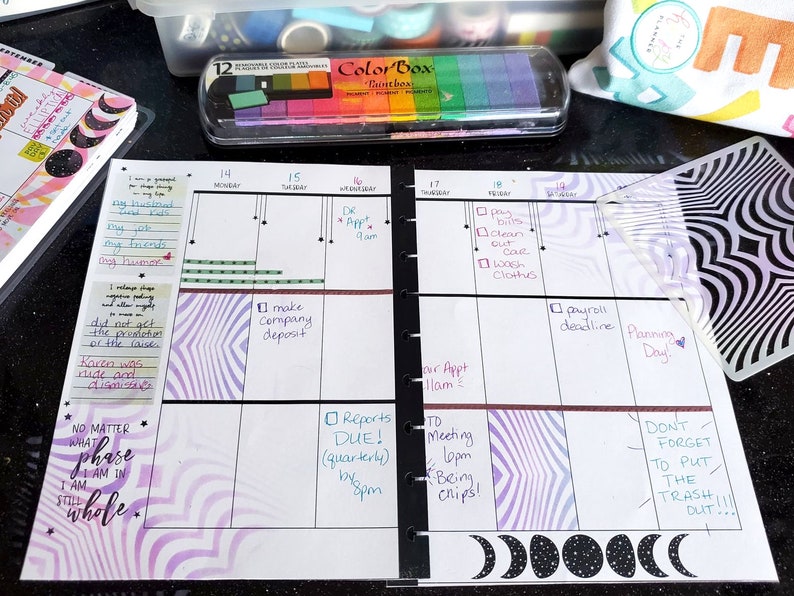 SEPTEMBER
12 REMOVABLE COLOR PLATES
PLAQUES DE COULEUR AMOVIBLES
ColorBox
Paintbox
PIGMENT
THE
PLANNER
E
14
MONDAY
15
TUESDAY
16
WEDNESDAY
17
THURSDAY
18
FRIDAY
19
SATURDAY
I am so grateful
for these things
in my life.
my husband
and kids
my job
my friends
my humor
I release these
negative feelings
and allow myself
to move on.
did not get
the promotion
or the raise.
Karen was
rude and
dismissive
NO MATTER
WHAT
phase
I AM IN
I AM
STILL
whole
DR
Appt
9am
make
company
deposit
Reports
DUE!
(quarterly)
by
8pm
pay
bills
clean
out
car
wash
clothes
air Appt
11am
payroll
deadline
Planning
Day!
TO
Meeting
6pm
Bring
chips!
DON'T
FORGET
TO PUT
THE
TRASH
OUT!!!